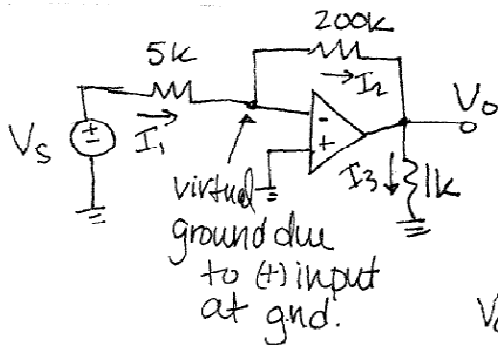 200k
5k
I₂
V₀
V_S
±
I₁
-
+
I3
1k
virtual
ground due
to (+) input
at gnd.